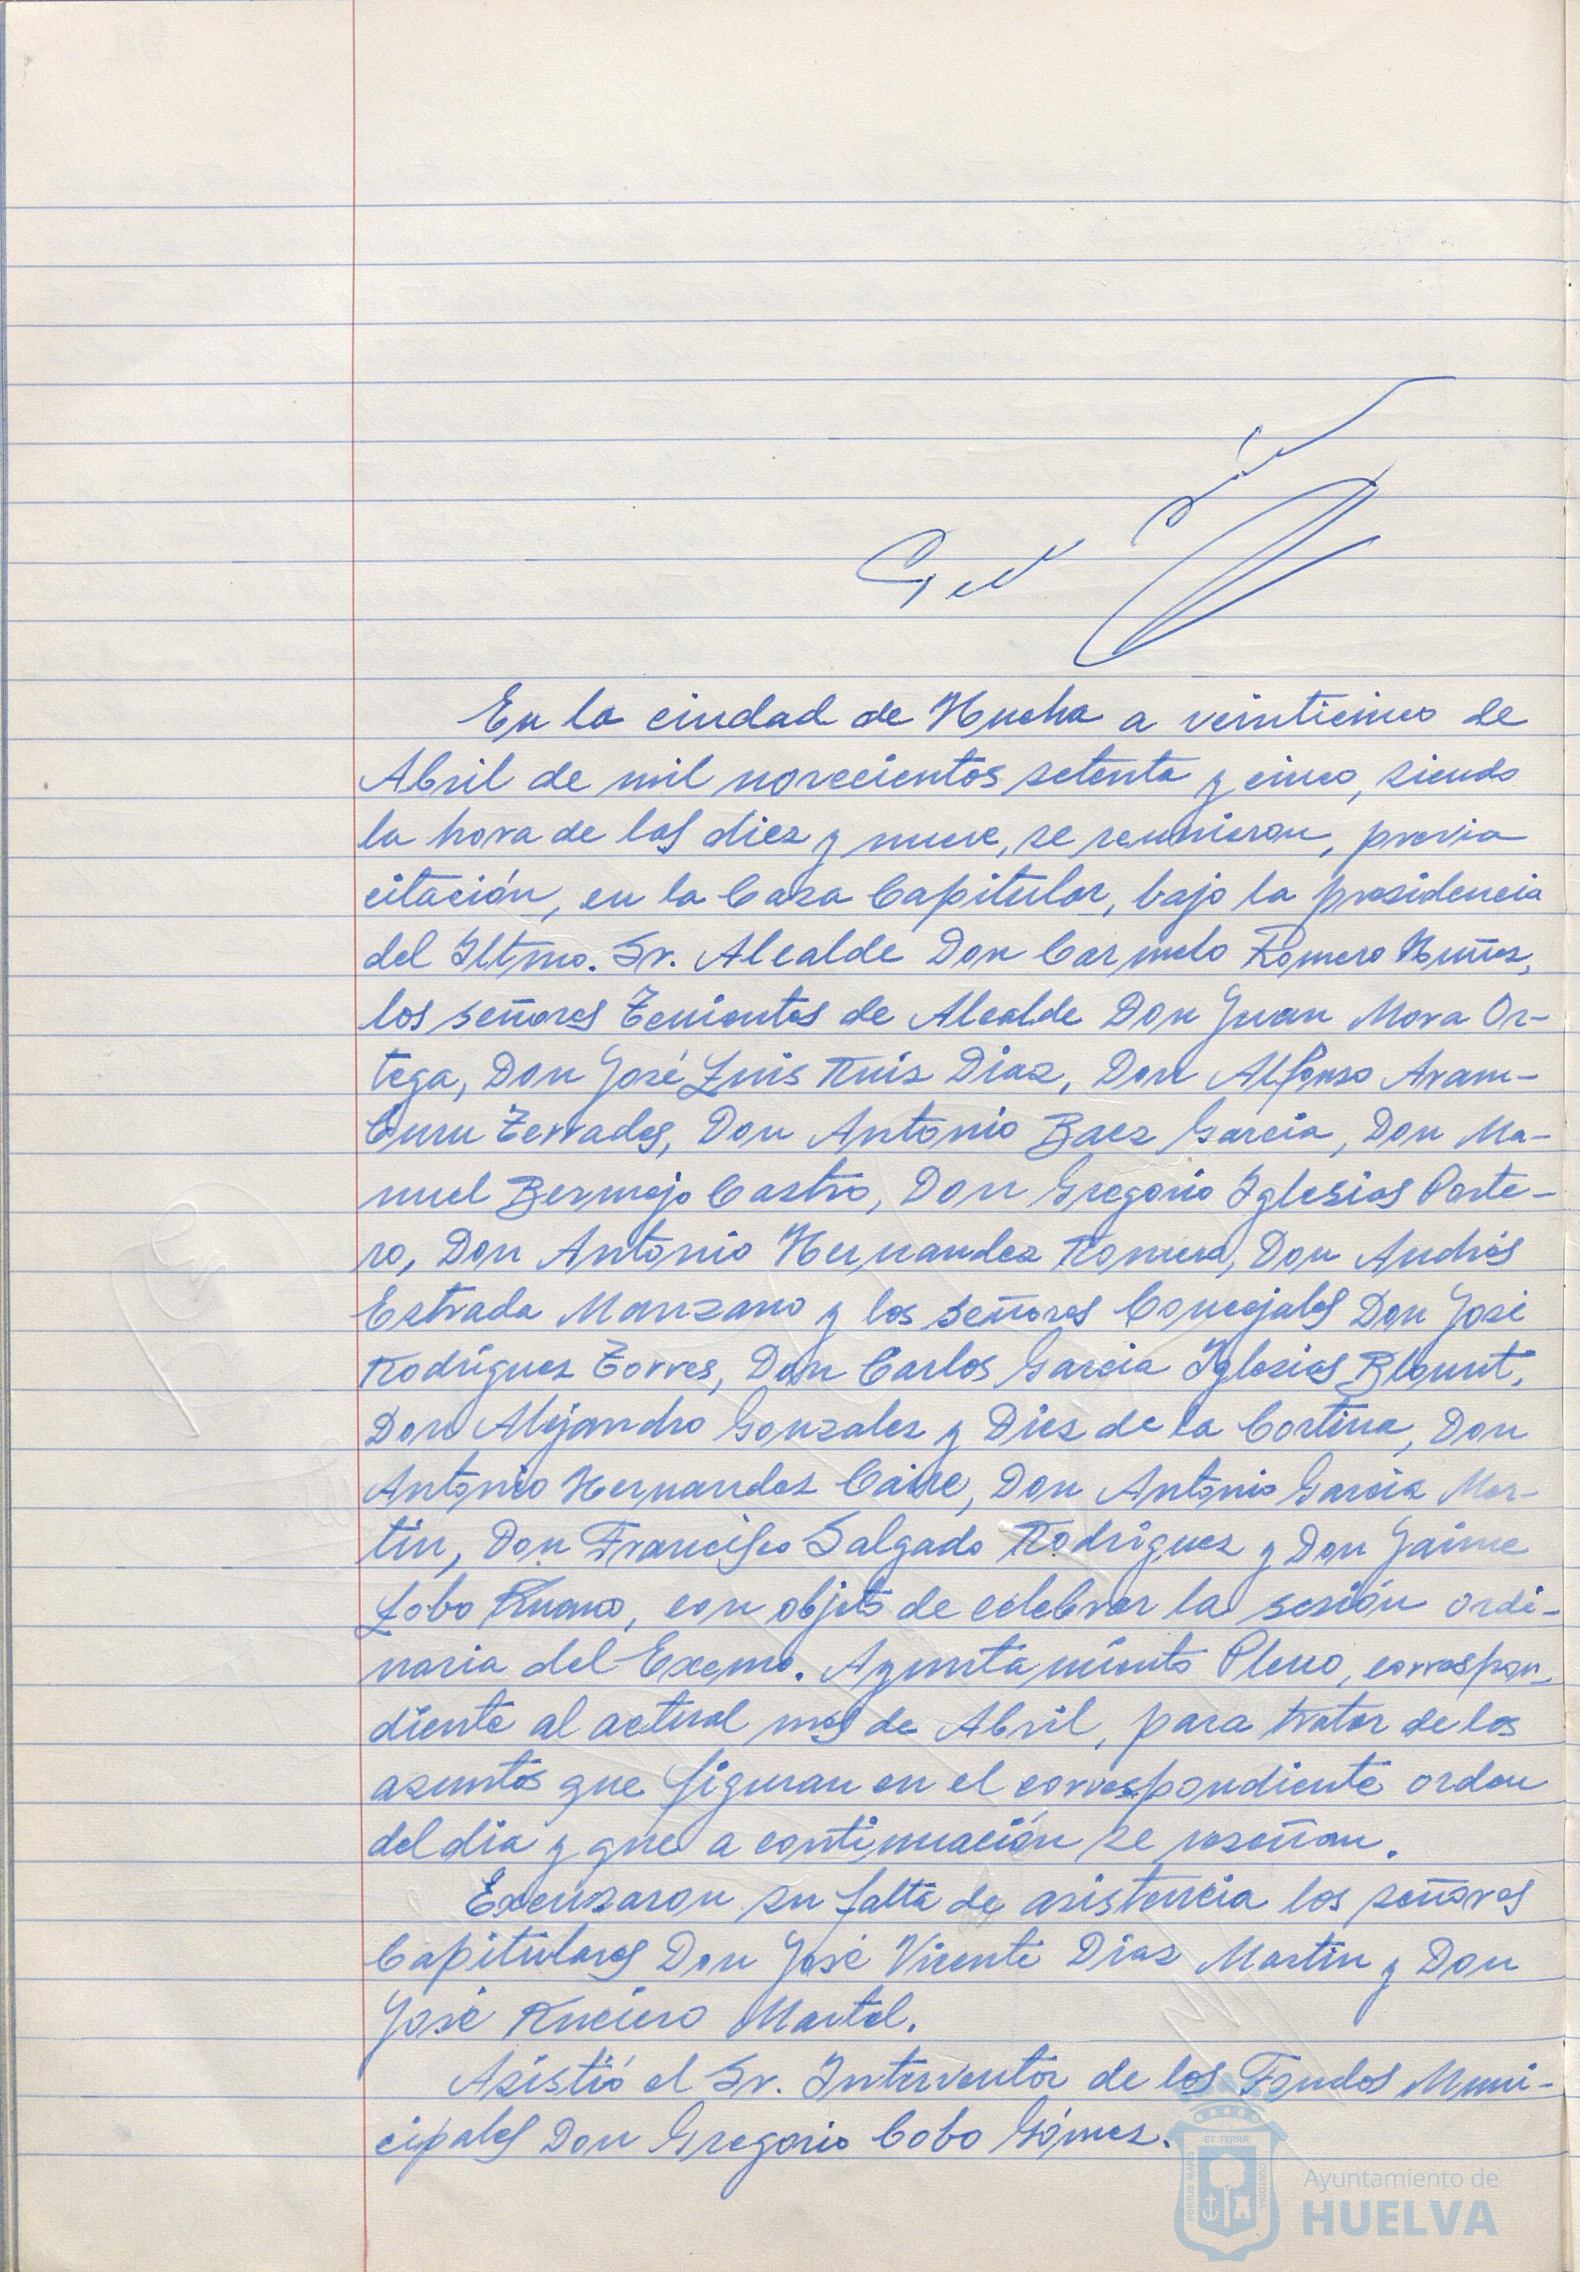 En la ciudad de Huelva a veinticinco de
Abril de mil novecientos setenta y cinco, siendo
la hora de las diez y nueve, se reunieron, previa
citación, en la Casa Capitular, bajo la presidencia
del Iltmo. Sr. Alcalde Don Carmelo Romero Nuñez,
los señores Tenientes de Alcalde Don Juan Mora Or-
tega, Don José Luis Ruiz Diaz, Don Alfonso Aram-
buru Terrades, Don Antonio Baez Garcia, Don Ma-
nuel Bermejo Castro, Don Gregorio Iglesias Porte-
ro, Don Antonio Hernandez Romera, Don Andrés
Estrada Manzano y los señores Concejales Don José
Rodríguez Torres, Don Carlos Garcia Iglesias Blount,
Don Alejandro Gonzalez y Diez de la Cortina, Don
Antonio Hernandez Caire, Don Antonio Garcia Mar-
tin, Don Francisco Salgado Rodríguez y Don Jaime
Lobo Ruano, con objeto de celebrar la sesión ordi-
naria del Excmo. Ayuntamiento Pleno, correspon-
diente al actual mes de Abril, para tratar de los
asuntos que figuran en el correspondiente orden
del dia y que a continuación se reseñan.
Excusaron su falta de asistencia los señores
Capitulares Don José Vicente Diaz Martin y Don
José Ruciero Martel.
Asistió el Sr. Interventor de los Fondos Muni-
cipales Don Gregorio Cobo Gómez.
ET TERRÆ
PORTUS MARIS
CUSTODIA
Ayuntamiento de
HUELVA